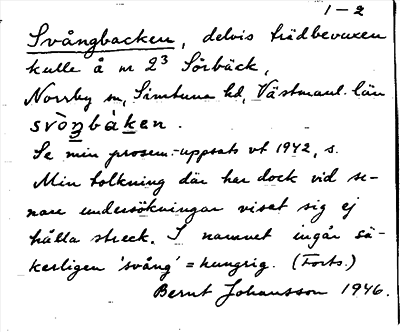 1–2
Svångbacken, delvis trädbevuxen
kulle å nr 2³ Sörbäck,
Norrby sn, Simtuna hd, Västmanl. län
svòŋbàken.
Se min prosem.-uppsats vt 1942, s.
Min tolkning där har dock vid se-
nare undersökningar visat sig ej
hålla streck. I namnet ingår sä-
kerligen 'svång' = hungrig. (Forts.)
Bernt Johansson 1946.